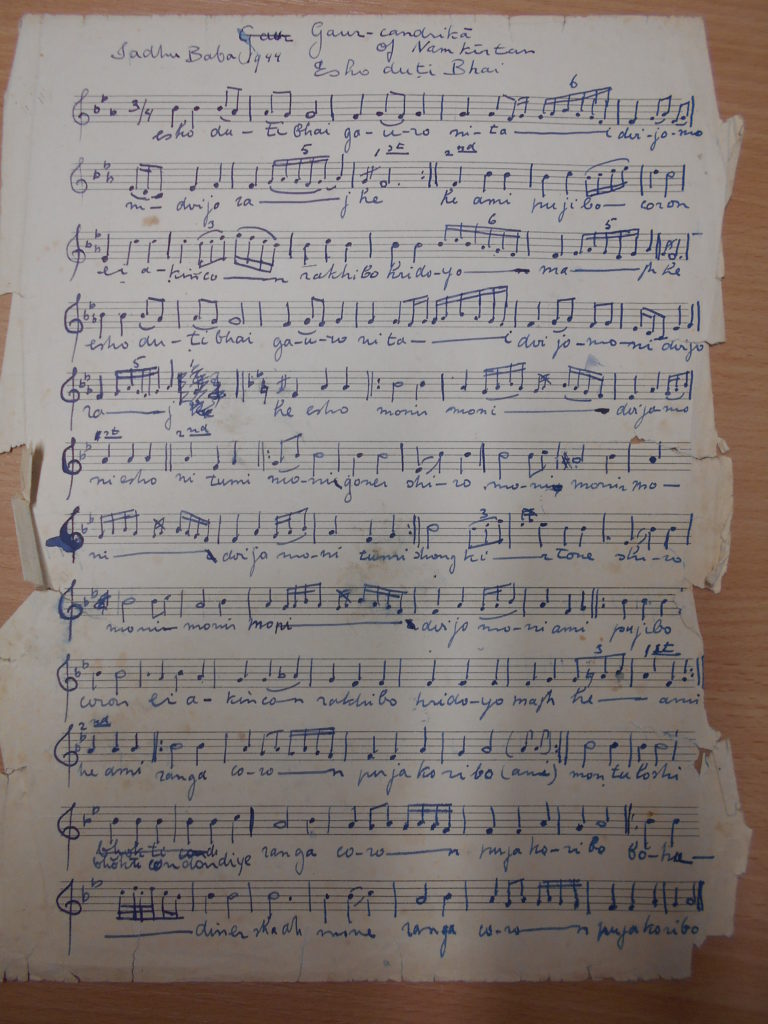 Gaur Gaur-candrikā
Sadhu Baba 1944 of Nam kīrtan
Esho duti Bhai
3/4 6
esho du - ti bhai ga-u-ro ni-ta — i dvi-jo-mo
5 1st 2nd
ni- dvijo ra — j he he ami pujibo — coron
3 6 5
ei a-kinco — n rakhibo hridoyo — ma — jh he
esho du-ti bhai ga-u-ro nita — i dvijo-mo-ni dvijo
5
ra — j he esho monir moni — dvijo mo
1st 2nd
ni esho ni tumi mo-ni goner shi-ro moni monir mo-
3
ni — dvija mo-ni tumi shong ki — r tone shi-ro
monir monir moni — dvijo mo-ni ami pujibo
3 1st
coron ei a-kinco-n rakhibo hrido-yo majh he — ami
2nd
he ami ranga co-ro — n puja ko ribo (ami) mon tuloshi
bhokti
bhokti condon diye ranga co-ro — n puja ko-ribo bō-hu —
— diner shadh mone ranga co-ro — n puja koribo